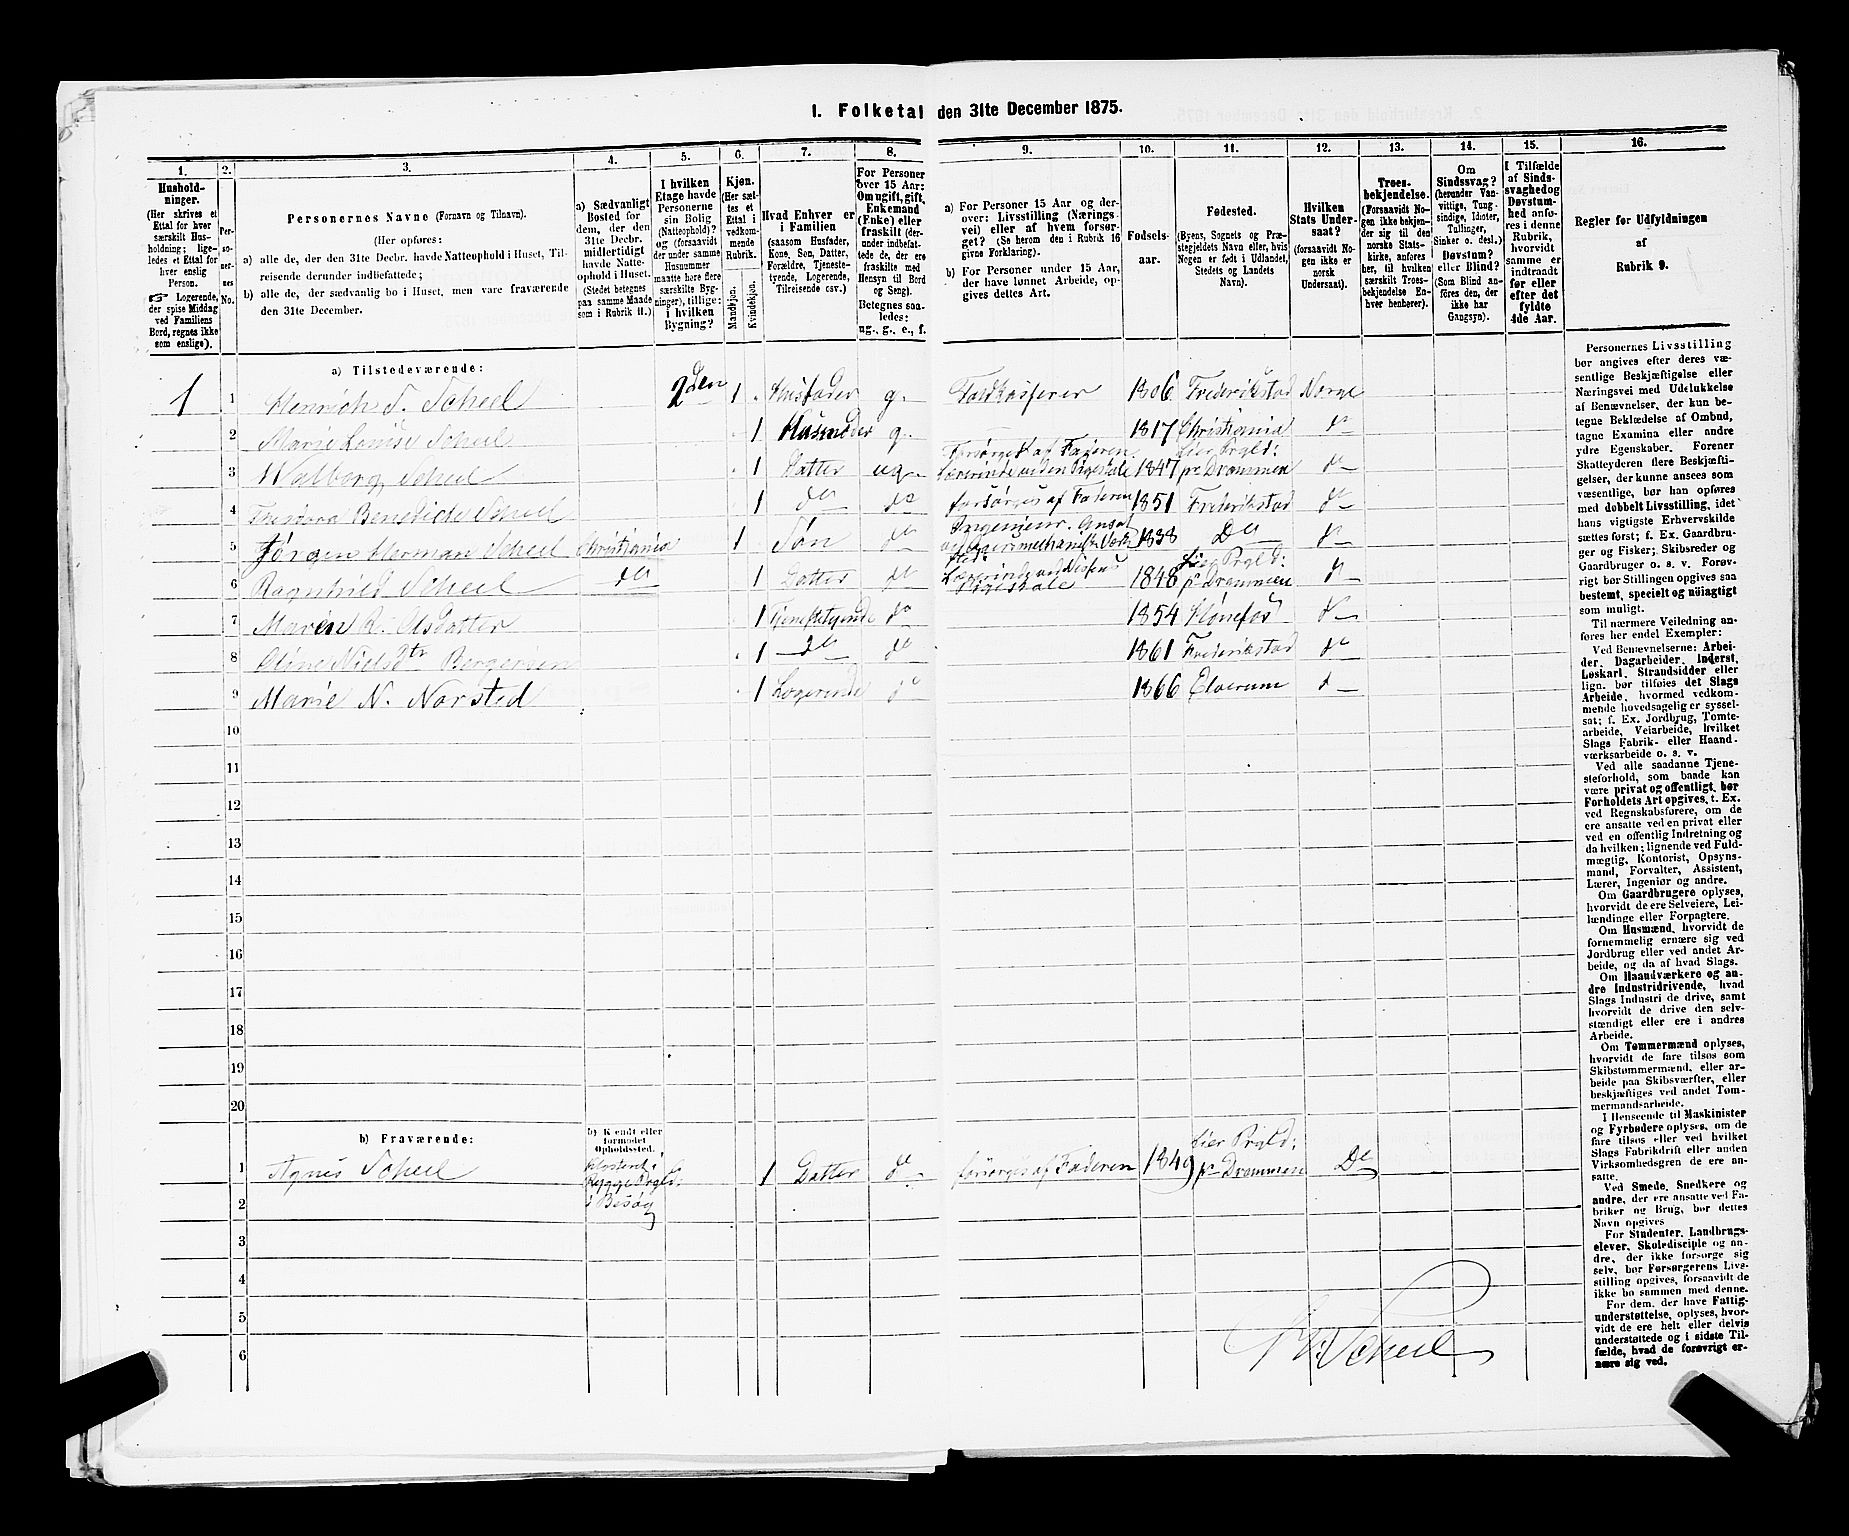 1. Folketal den 31te December 1875.
1. 2. 3. 4. 5. 6. 7. 8. 9. 10. 11. 12. 13. 14. 15. 16.
Hushold-
ninger.
(Her skrives et
Ettal for hver
særskilt Hus-
holdning; lige-
ledes et Ettal for
hver enslig
Person.
☞ Logerende,
der spise Middag
ved Familiens
Bord, regnes ikke
som enslige).
Per-
so-
ner-
nes
No.
Personernes Navne (Fornavn og Tilnavn).
(Her opføres:
a) alle de, der den 31te Decbr. havde Natteophold i Huset, Til-
reisende derunder indbefattede;
b) alle de, der sædvanlig bo i Huset, men vare fraværende
den 31te December.
a) Sædvanligt
Bosted for
dem, der den
31te Decbr.
midlertidigt
havde Natte-
ophold i Huset.
(Stedet betegnes
paa samme Maade
som i Rubrik 11.)
I hvilken
Etage havde
Personerne
sin Bolig
(Natteophold)?
og (forsaavidt
der under samme
Husnummer
maatte høre flere
særskilte Byg-
ninger), tillige:
i hvilken
Bygning?
Kjøn.
(Her sæt-
tes et
Ettal i
vedkom-
mende
Rubrik.
Mandkjøn.
Kvindekjøn.
Hvad Enhver er
i Familien
(saasom Husfader,
Kone, Søn, Datter,
Forældre, Tjeneste-
tyende, Logerende,
Tilreisende csv.)
For Personer
over 15 Aar:
Om ugift, gift,
Enkemand
(Enke) eller
fraskilt (der-
under indbefat-
tede de, der ere
fraskilte med
Hensyn til Bord
og Seng).
Betegnes saa-
ledes:
ug., g., e., f.
a) For Personer 15 Aar og der-
over: Livsstilling (Nærings-
vei) eller af hvem forsør-
get? (Se herom den i Rubrik 16
givne Forklaring).
b) For Personer under 15 Aar,
der have lønnet Arbeide, op-
gives dettes Art.
Fødsels-
aar.
Fødested.
(Byens, Sognets og Præ-
stegjeldets Navn eller, hvis
Nogen er født i Udlandet,
Stedets og Landets
Navn).
Hvilken
Stats Under-
saat?
(forsaavidt No-
gen ikke er
norsk
Undersaat).
Troes-
bekjendelse.
(Forsaavidt No-
gen ikke bekjen-
der sig til den
norske Stats-
kirke, anføres
her, til hvilken
særskilt Troes-
bekjendelse En-
hver henhører).
Om
Sindssvag?
(herunder Van-
vittige, Tung-
sindige, Idioter,
Tullinger,
Sinker o. desl.)
Døvstum?
eller Blind?
(Som Blind an-
føres den, der
ikke har
Gangsyn).
I Tilfælde
af Sinds-
svaghed og
Døvstum-
hed anfø-
res i denne
Rubrik,
hvorvidt
samme er
indtraadt
før eller
efter det
fyldte
4de Aar.
Regler for Udfyldningen
af
Rubrik 9.
a) Tilstedeværende:
1 1 Henrich T. Scheel 2den 1 Husfader g. Toldkasserer 1806 Frederikstad Norge
2 Marie Louise Scheel 1 Husmoder g. 1817 Christiania do
3 Walborg Scheel 1 Datter ug. Forsørges af Faderen. Lærerinde ved en Pigeskole 1847 Lier Prgld: pr Drammen do
4 Theodora Benedicte Scheel 1 do do forsørges af Faderen 1851 Frederikstad do
5 Jørgen Herman Scheel Christiania 1 Søn do Ingenieur. Ansat 1838 Do do
6 Ragnhild Scheel do 1 Datter do Lærerinde ved Nissens Pigeskole 1848 Lier Prgld: pr Drammen do
7 Maren R. Olsdatter 1 Tjenestetyende do 1854 Hønefos do
8 Oline Nielsdtr Bergersen 1 do do 1861 Frederikstad do
9 Marie N. Norsted 1 Logerende do 1866 Elverum do
10
11
12
13
14
15
16
17
18
19
20
b) Fraværende:
b) Kendt eller
formodet
Opholdssted.
1 Agnes Scheel Rygge Prgld: i Besøg 1 Datter do forsørges af Faderen 1849 Lier Prgld: pr Drammen Do
2
3
4
5
6
Scheel
Personernes Livsstilling
bør angives efter deres væ-
sentlige Beskjæftigelse eller
Næringsvei med Udelukkelse
af Benævnelser, der kun be-
tegne Beklædelse af Ombud,
tagne Examina eller andre
ydre Egenskaber. Forener
Skatteyderen flere Beskjæfti-
gelser, der kunne ansees som
væsentlige, bør han opføres
med dobbelt Livsstilling, idet
hans vigtigste Erhvervskilde
sættes først; f. Ex. Gaardbru-
ger og Fisker; Skibsreder og
Gaardbruger o. s. v. Forøv-
rigt bør Stillingen opgives saa
bestemt, specielt og nöiagtigt
som muligt.
Til nærmere Veiledning an-
føres her endel Exempler:
Ved Benævnelserne: Arbei-
der, Dagarbeider, Inderst,
Løskarl, Strandsidder eller
lign. bør tilføies det Slags
Arbeide, hvormed vedkom-
mende hovedsagelig er syssel-
sat; f. Ex. Jordbrug, Tomte-
arbeide, Veiarbeide, hvilket
Slags Fabrik- eller Haand-
værksarbeide o. s. v.
Ved alle saadanne Tjene-
steforhold, som baade kan
være privat og offentligt, bør
Forholdets Art opgives, t. Ex.
ved Regnskabsførere, om de
ere ansatte ved en privat eller
ved en offentlig Indretning og
da hvilken; lignende ved Fuld-
mægtig, Kontorist, Opsyns-
mand, Forvalter, Assistent,
Lærer, Ingeniør og andre.
Om Gaardbrugere oplyses,
hvorvidt de ere Selveiere, Lei-
lændinge eller Forpagtere.
Om Husmænd, hvorvidt de
fornemmelig ernære sig ved
Jordbrug eller ved andet Ar-
beide, og da af hvad Slags.
Om Haandværkere og an-
dre Industridrivende, hvad
Slags Industri de drive, samt
hvorvidt de drive den selv-
stændigt eller ere i andres
Arbeide.
Om Tømmermænd oplyses,
hvorvidt de fare tilsøs som
Skibstømmermænd, eller ar-
beide paa Skibsværfter, eller
beskjæftiges ved andet Tøm-
mermandsarbeide.
I Henseende til Maskinister
og Fyrbødere oplyses, om de
fare tilsøs eller ved hvilket
Slags Fabrikdrift eller anden
Virksomhedsgren de ere an-
satte.
Ved Smede, Snedkere og
andre, der ere ansatte ved Fa-
briker og Brug, bør dettes
Navn opgives
For Studenter, Landbrugs-
elever, Skoledisciple og an-
dre, der ikke forsørge sig
selv, bør Forsørgerens Livs-
stilling opgives, forsaavidt de
ikke bo sammen med denne.
For dem, der have Fattig-
understøttelse, oplyses, hvor-
vidt de ere helt eller delvis
understøttede og i sidste Til-
fælde, hvad de forøvrigt er-
nære sig ved.